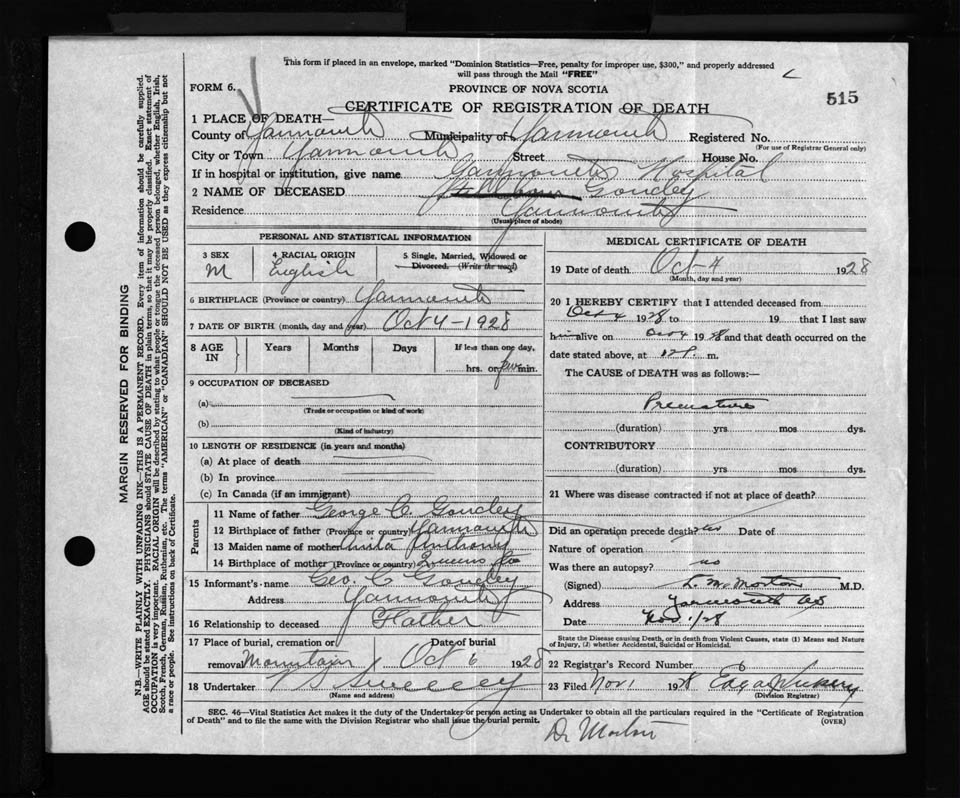 This form if placed in an envelope, marked "Dominion Statistics—Free, penalty for improper use, $300," and properly addressed
will pass through the Mail "FREE"
FORM 6.
PROVINCE OF NOVA SCOTIA
515
CERTIFICATE OF REGISTRATION OF DEATH
1 PLACE OF DEATH—
County of Yarmouth Municipality of Yarmouth Registered No.
(For use of Registrar General only)
City or Town Yarmouth Street House No.
If in hospital or institution, give name Yarmouth Hospital
2 NAME OF DECEASED Goudey
Residence Yarmouth
(Usual place of abode)
PERSONAL AND STATISTICAL INFORMATION
3 SEX
M
4 RACIAL ORIGIN
English
5 Single, Married, Widowed or
Divorced. (Write the word)
6 BIRTHPLACE (Province or country) Yarmouth
7 DATE OF BIRTH (month, day and year) Oct 4-1928
8 AGE IN
Years Months Days If less than one day,
hrs. or few min.
9 OCCUPATION OF DECEASED
(a)
(Trade or occupation or kind of work)
(b)
(Kind of industry)
10 LENGTH OF RESIDENCE (in years and months)
(a) At place of death
(b) In province
(c) In Canada (if an immigrant)
Parents
11 Name of father George C. Goudey
12 Birthplace of father (Province or country) Yarmouth
13 Maiden name of mother Anita Anthony
14 Birthplace of mother (Province or country) Queens Co
15 Informant's name Geo. C Goudey
Address Yarmouth
16 Relationship to deceased Father
17 Place of burial, cremation or
removal Mountain
Date of burial
Oct 6 1928
18 Undertaker V S Sweeney
(Name and address)
MEDICAL CERTIFICATE OF DEATH
19 Date of death Oct-4 1928
(Month, day and year)
20 I HEREBY CERTIFY that I attended deceased from
Oct 4 1928 to 19 that I last saw
him alive on Oct 4 1928 and that death occurred on the
date stated above, at m.
The CAUSE of DEATH was as follows:—
Premature
(duration) yrs mos dys.
CONTRIBUTORY
(duration) yrs mos dys.
21 Where was disease contracted if not at place of death?
Did an operation precede death? Date of
Nature of operation
Was there an autopsy? no
(Signed) L. M. Morton M.D.
Address Yarmouth NS
Date Nov 1/28
State the Disease causing Death, or in death from Violent Causes, state (1) Means and Nature
of Injury, (2) whether Accidental, Suicidal or Homicidal.
22 Registrar's Record Number
23 Filed Nov 1 1928 Edgar
(Division Registrar)
SEC. 46—Vital Statistics Act makes it the duty of the Undertaker or person acting as Undertaker to obtain all the particulars required in the "Certificate of Registration
of Death" and to file the same with the Division Registrar who shall issue the burial permit. (OVER)
Dr Morton
MARGIN RESERVED FOR BINDING
N.B.—WRITE PLAINLY WITH UNFADING INK—THIS IS A PERMANENT RECORD. Every item of information should be carefully supplied.
AGE should be stated EXACTLY. PHYSICIANS should STATE CAUSE OF DEATH in plain terms, so that it may be properly classified. Exact statement of
OCCUPATION is very important. RACIAL ORIGIN will be described by stating to what people or tongue the deceased person belonged, whether English, Irish,
Scotch, French, German, Russian, Ruthenian, etc. The terms "AMERICAN" or "CANADIAN" SHOULD NOT BE USED as they express citizenship but not
a race or people. See instructions on back of Certificate.